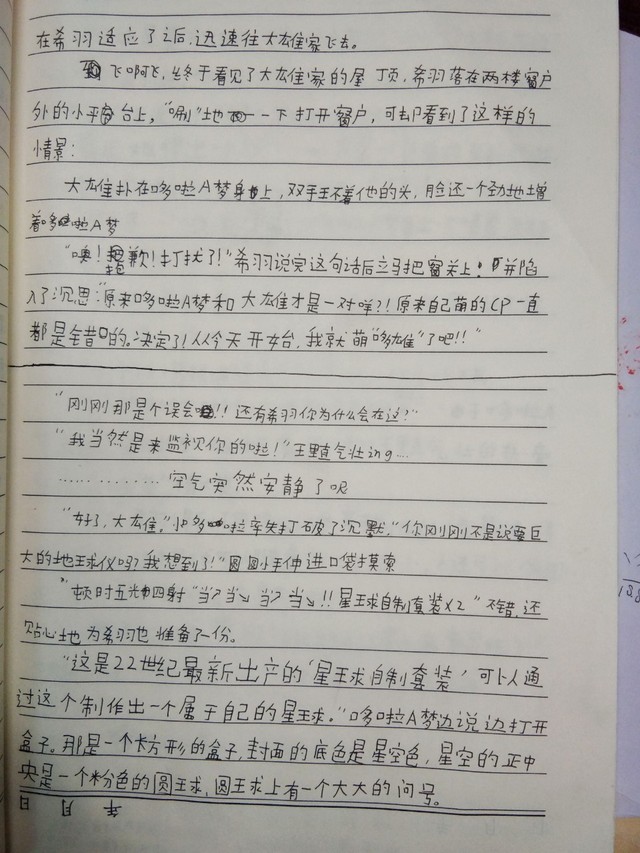 在希羽适应了之后,迅速往大雄家飞去。
飞啊飞,终于看见了大雄家的屋顶,希羽落在两楼窗户
外的小平台上,"唰"地一下打开窗户,可却看到了这样的
情景:
大雄扑在哆啦A梦身上,双手环着他的头,脸还一个劲地蹭
着哆啦A梦
"噢!抱歉!打扰了!"希羽说完这句话后立马把窗关上!并陷
入了沉思"原来哆啦A梦和大雄才是一对咩?!原来自己萌的CP一直
都是错的。决定了!从今天开始,我就萌"哆雄"了吧!!"
"刚刚那是个误会!!还有希羽你为什么会在这?"
"我当然是来监视你的啦!"理直气壮ing…
…………空气突然安静了呢
"好了,大雄。"哆啦率先打破了沉默,"你刚刚不是说要巨
大的地球仪吗?我想到了!"圆圆小手伸进口袋摸索
顿时五光四射"当当当当!!星球自制套装X2"不错,还
贴心地为希羽也准备了一份。
"这是22世纪最新出产的'星球自制套装'可以通
过这个制作出一个属于自己的星球。"哆啦A梦边说边打开
盒子。那是一个长方形的盒子,封面的底色是星空色,星空的正中
央是一个粉色的圆球,圆球上有一个大大的问号。
年 月 日